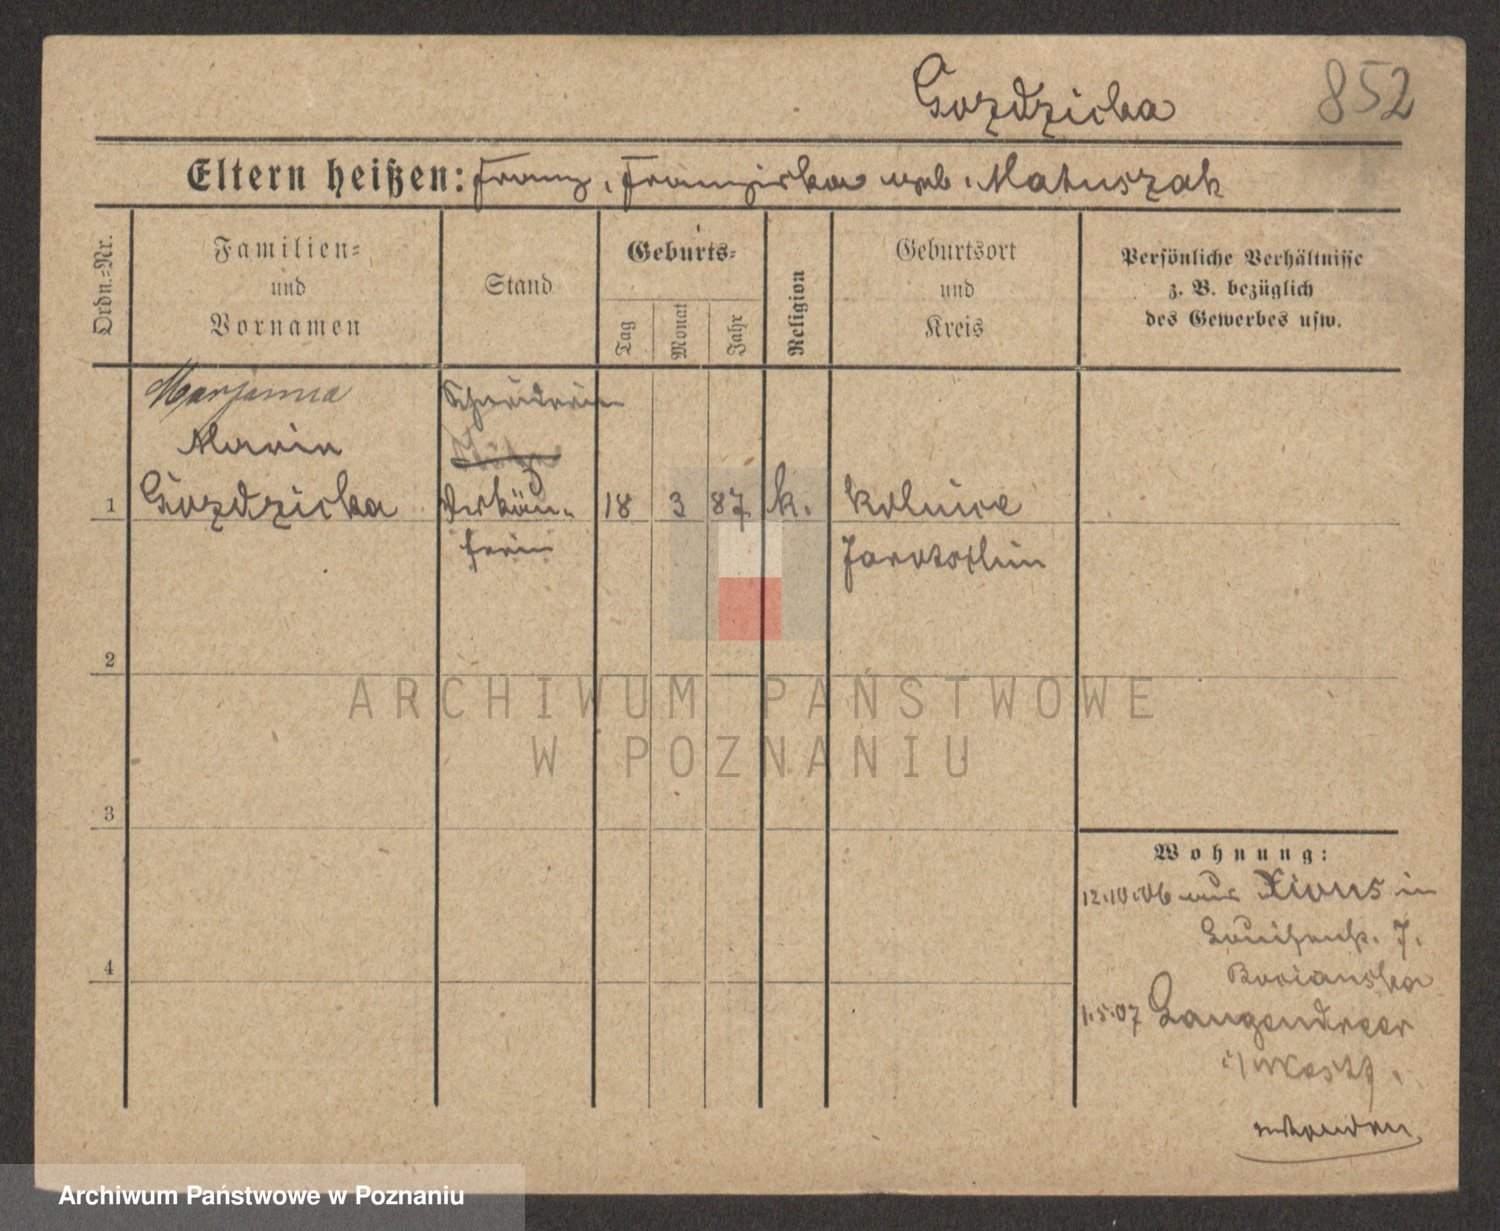 Gozdzicka 852
Eltern heißen: Franz, Franziska geb. Matuszak
Ordn.-Nr.
Familien-
und
Vornamen
Stand
Geburts-
Tag
Monat
Jahr
Religion
Geburtsort
und
Kreis
Persönliche Verhältnisse
z. B. bezüglich
des Gewerbes usw.
Marjanna
Marie
Gozdzicka
Schneiderin
Verkäu-
ferin
1 18 3 87 k.
Kolnice
Jarotschin
2
3
4
Wohnung:
12.10.06 aus Xions in
Louisenstr. 7.
1.5.07 Langendreer
i/Westf.
ARCHIWUM PAŃSTWOWE
W POZNANIU
Archiwum Państwowe w Poznaniu